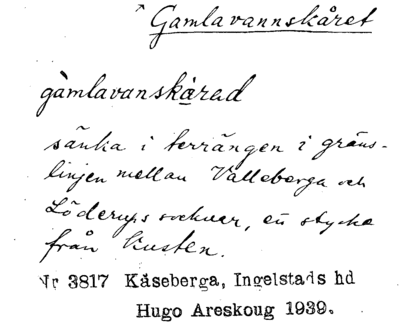 Gamlavannskåret
gàmlavanskårad
sänka i terrängen i gräns-
linjen mellan Valleberga och
Löderups socknar, en stycke
från kusten.
Nr 3817 Kåseberga, Ingelstads hd
Hugo Areskoug 1939.